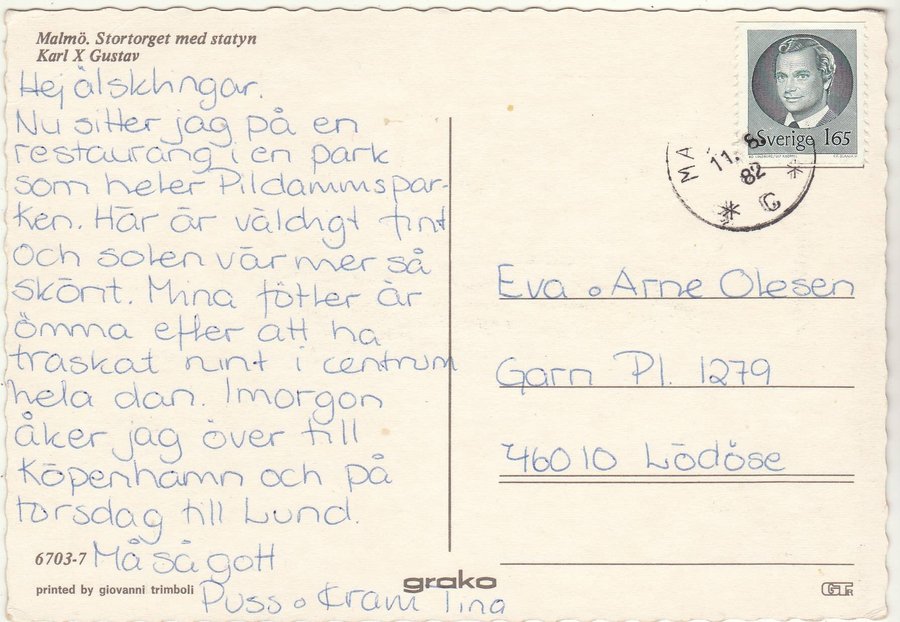 Malmö. Stortorget med statyn
Karl X Gustav
Hej älsklingar.
Nu sitter jag på en
restaurang i en park
som heter Pildammspar-
ken. Här är väldigt fint
och solen värmer så
skönt. Mina fötter är
ömma efter att ha
traskat runt i centrum
hela dan. Imorgon
åker jag över till
Köpenhamn och på
torsdag till Lund.
Må så gott
Puss o Kram Tina
6703-7
printed by giovanni trimboli
grako
Sverige 165
MA
11. 8
82
* G *
Eva o Arne Olesen
Garn Pl. 1279
46010 Lödöse
GTR